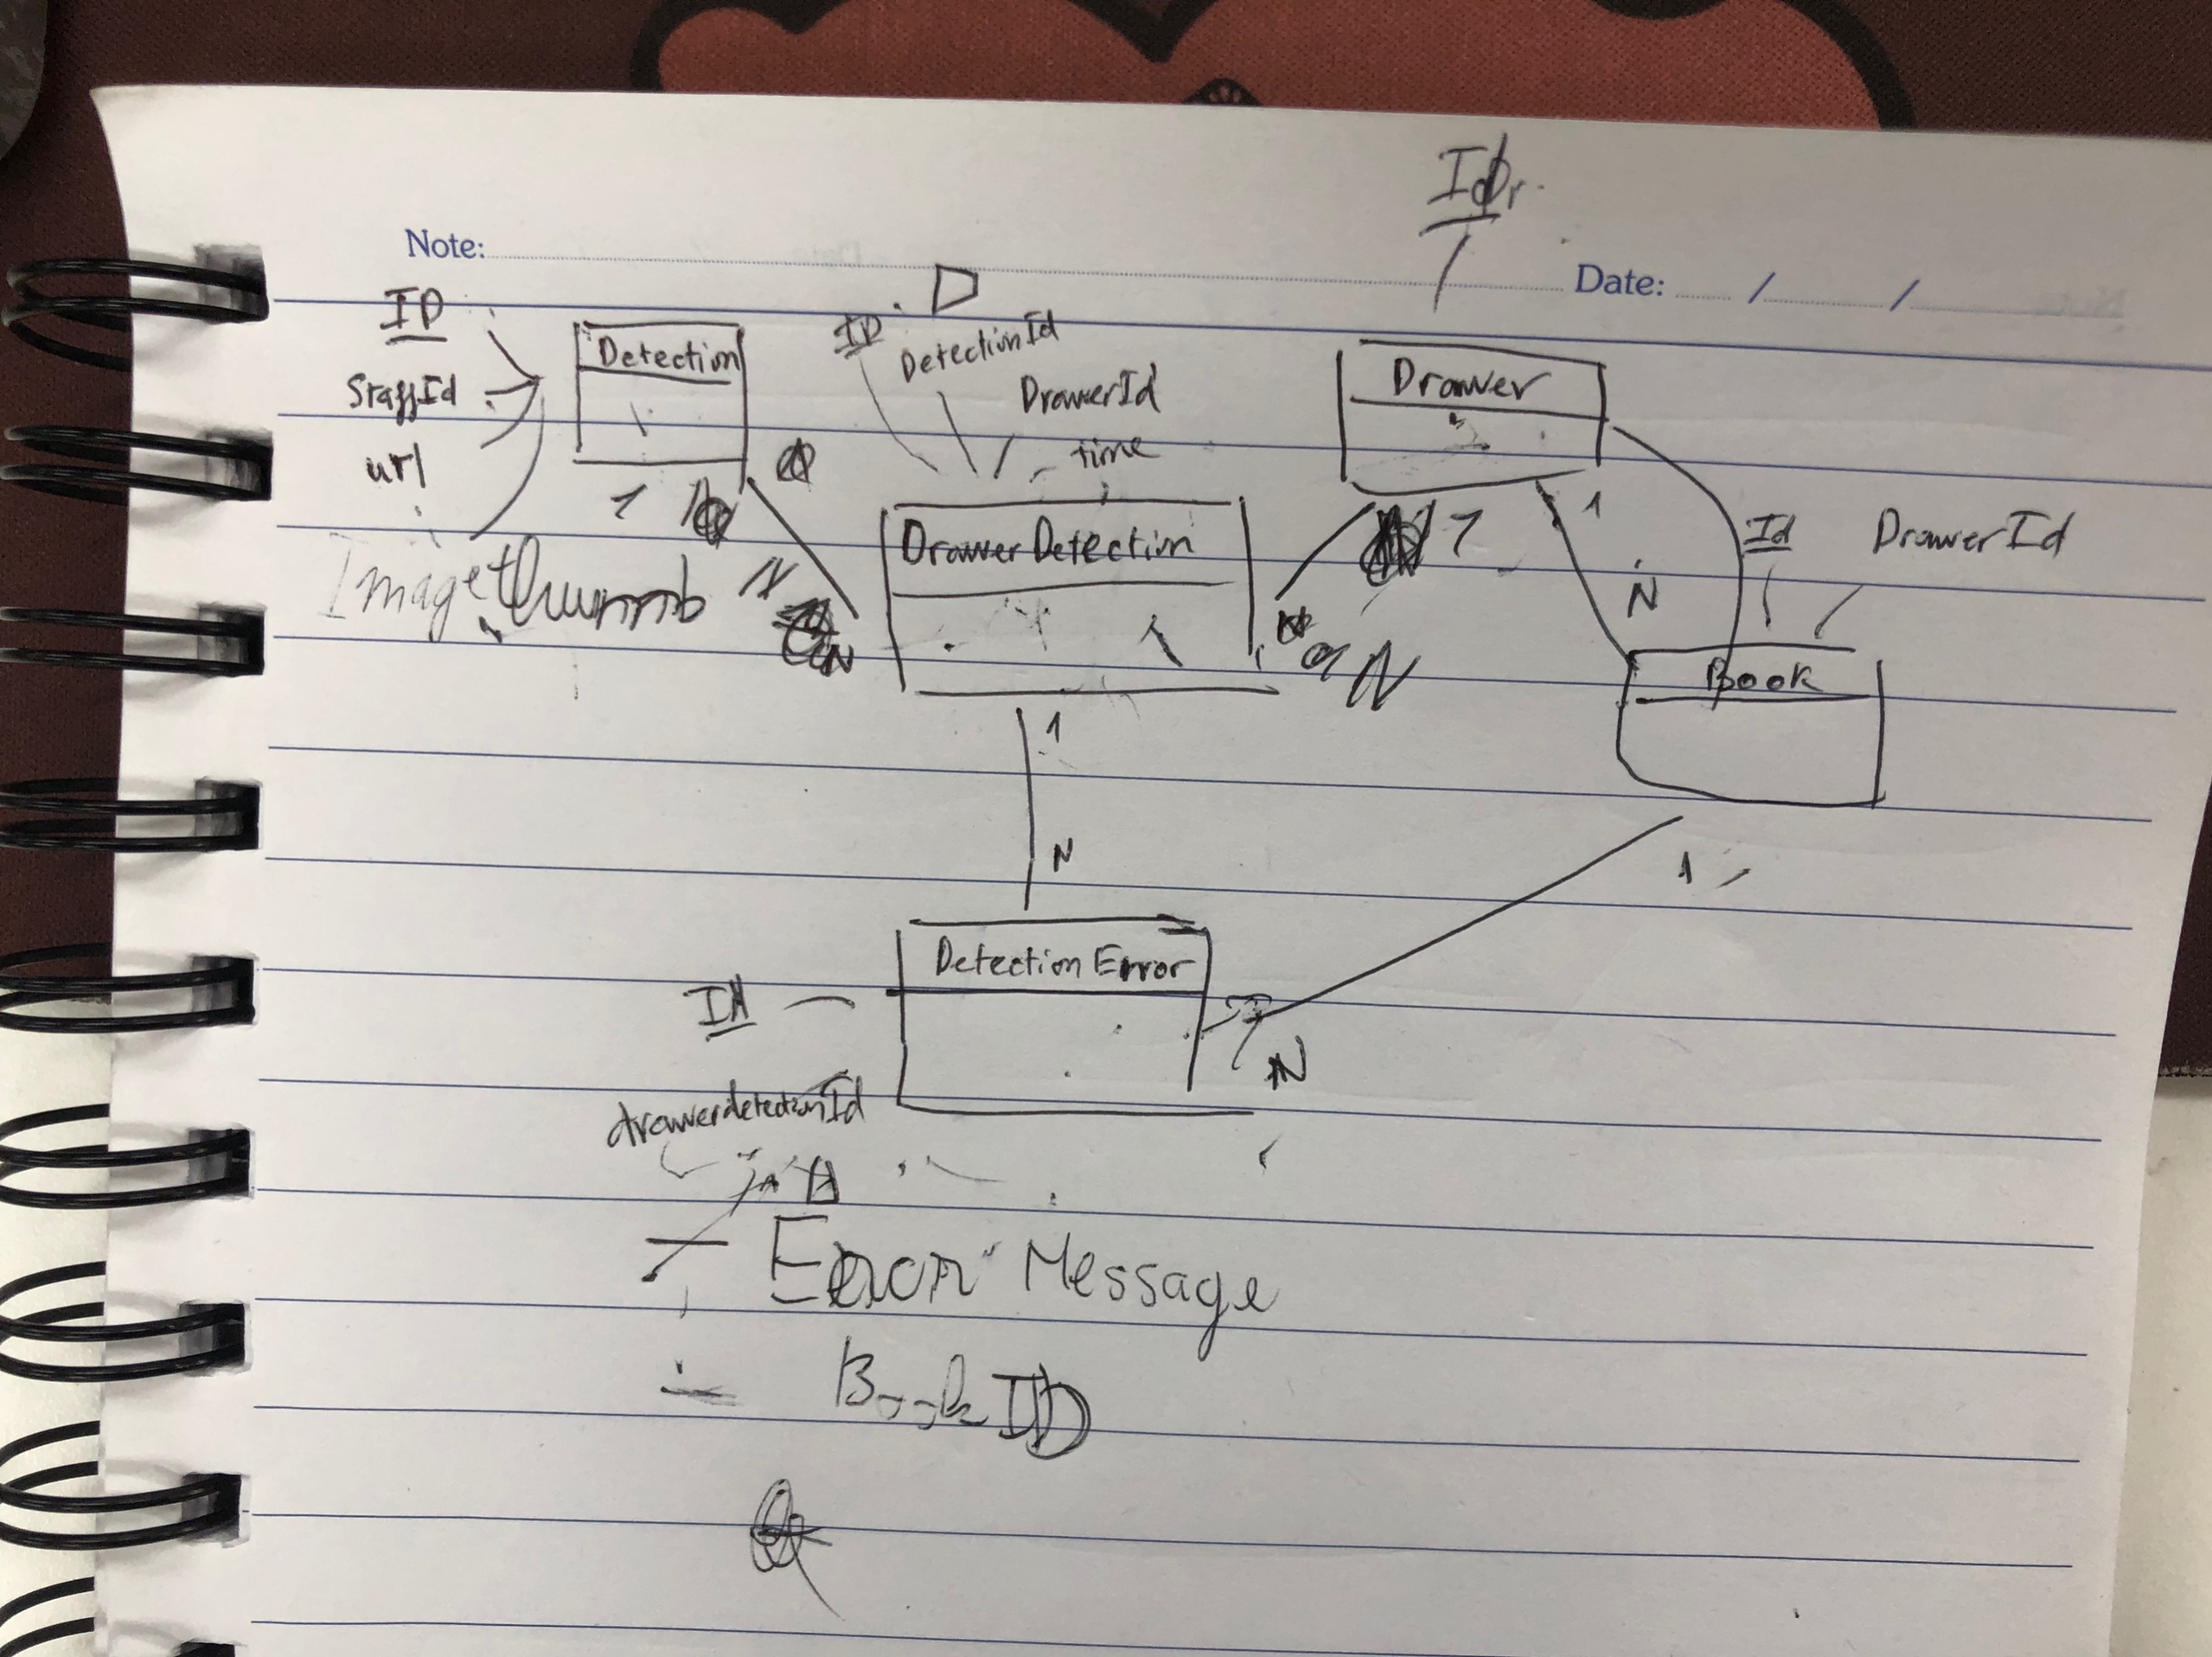 Note:
Date: / /
ID
StaffId
url
Imagethumb
Detection
1
N
ID
DetectionId
DrawerId
time
DrawerDetection
N
Drawer
1
1
N
Id
DrawerId
Book
1
N
1
Detection Error
N
Id
drawerdetectionId
Error Message
BookID